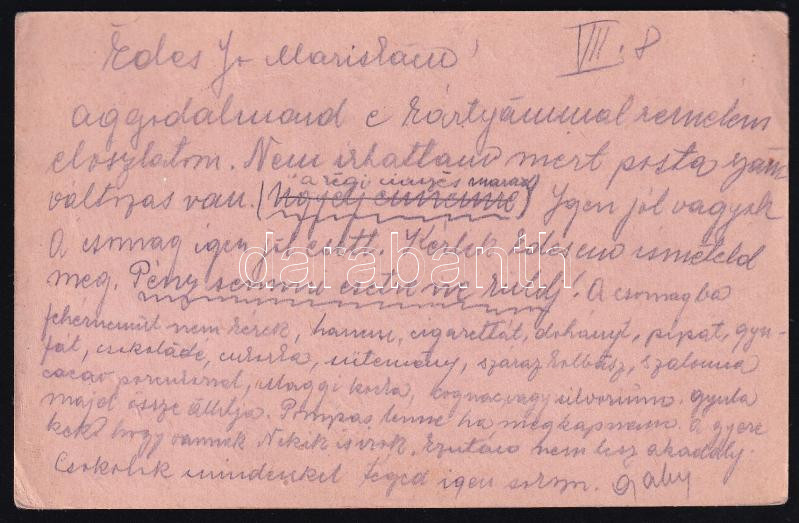 Édes Jó Mariskám! VIII. 8
aggodalmaid e kártyámmal remélem
eloszlatom. Nem írhattam mert posta szám
a régi címzés marad
változás van. (Ügyelj címemre) Igen jól vagyok
A csomag igen jól esett. Kérlek édesem ismételd
meg. Pénzt semmi esetre ne küldj! A csomagba
fehérneműt nem kérek, hanem, cigarettát, dohányt, pipát, gyu-
fát, csokoládé, cukorka, sütemény, száraz kolbász, szalonna
cacao porcukorral, Maggi kocka, cognac vagy silvorium. Gyula
majd össze állítja. Pompás lenne ha megkapnám. A gyere
kek hogy vannak. Nekik is írok. Ezután nem lesz akadály.
Csokolok mindenkit téged igen sokszor. Gaby
darabanth.com